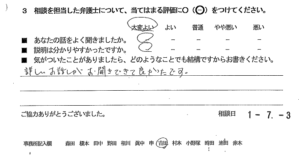 3 相談を担当した弁護士について、当てはまる評価に○(○)をつけてください。
大変よい よい 普通 やや悪い 悪い
■ あなたの話をよく聞きましたか。 － － － －
■ 説明は分かりやすかったですか。 － － － －
■ 気がついたことがありましたら、どのようなことでも結構ですからお書きください。
詳しいお話しがお聞きできて良かったです。
ご協力ありがとうございました。 相談日 1-7.-3
事務所記入欄 森田 榎本 田中 野田 村本 小野塚 赤木